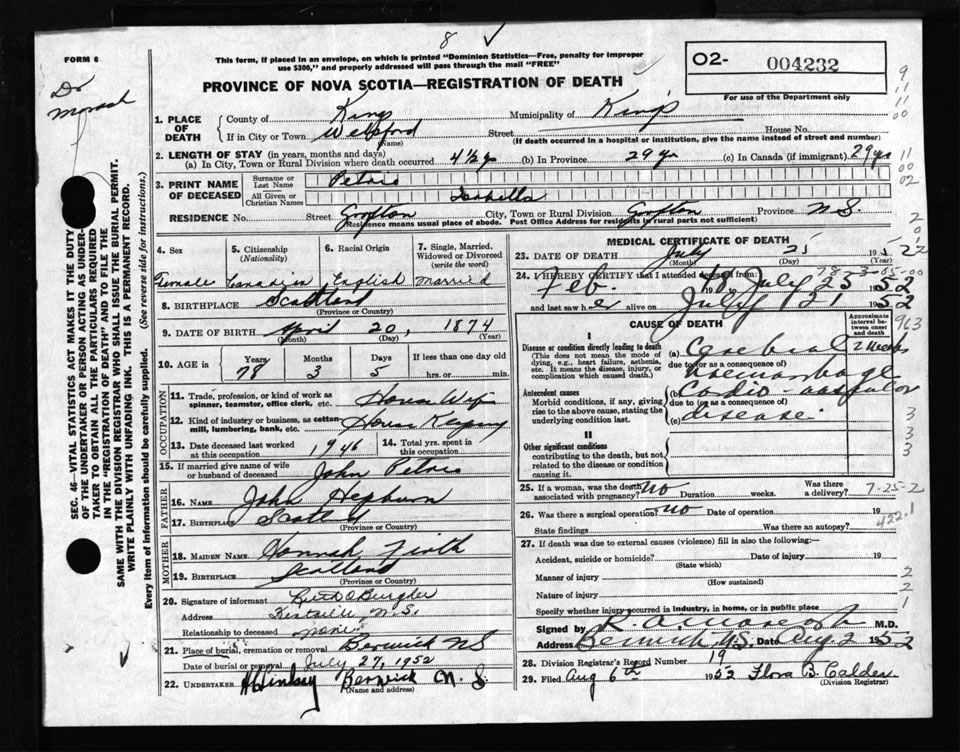 8 √
FORM 6
This form, if placed in an envelope, on which is printed "Dominion Statistics—Free, penalty for improper
use $300," and properly addressed will pass through the mail "FREE"
PROVINCE OF NOVA SCOTIA—REGISTRATION OF DEATH
O2- 004232
For use of the Department only
Dr
1. PLACE OF DEATH
County of Kings Municipality of Kings
If in City or Town Welsford (Name) Street House No.
(If death occurred in a hospital or institution, give the name instead of street and number)
2. LENGTH OF STAY (in years, months and days)
(a) In City, Town or Rural Division where death occurred 4½ y (b) In Province 29 yr (c) In Canada (if immigrant) 29 yrs
3. PRINT NAME OF DECEASED
Surname or Last Name Petrie
All Given or Christian Names Isabella
RESIDENCE No. Street Grafton City, Town or Rural Division Grafton Province N.S.
(Residence means usual place of abode. Post Office Address for residents in rural parts not sufficient)
4. Sex
5. Citizenship (Nationality)
6. Racial Origin
7. Single, Married, Widowed or Divorced (write the word)
Female Canadian English Married
8. BIRTHPLACE Scotland
(Province or Country)
9. DATE OF BIRTH April 20, 1874
(Month) (Day) (Year)
10. AGE
Years Months Days If less than one day old
78 3 5 hrs. or min.
OCCUPATION
11. Trade, profession, or kind of work as spinner, teamster, office clerk, etc. House Wife
12. Kind of industry or business, as cotton mill, lumbering, bank, etc. House Keeping
13. Date deceased last worked at this occupation 1946
14. Total yrs. spent in this occupation
15. If married give name of wife or husband of deceased John Petrie
FATHER
16. NAME John Hepburn
17. BIRTHPLACE
(Province or Country)
MOTHER
18. MAIDEN NAME Hannah Firth
19. BIRTHPLACE Scotland
(Province or Country)
20. Signature of informant
Address Kentville N.S.
Relationship to deceased none
21. Place of burial, cremation or removal Berwick NS
Date of burial or removal July 27, 1952
22. UNDERTAKER Berwick N.S.
(Name and address)
MEDICAL CERTIFICATE OF DEATH
23. DATE OF DEATH July 25 195
(Month) (Day) (Year)
24. I HEREBY CERTIFY that I attended deceased from:
Feb. to July 25 1952
and last saw her alive on July 21 1952
CAUSE OF DEATH
Approximate interval between onset and death
I
Disease or condition directly leading to death
(This does not mean the mode of dying, e.g., heart failure, asthenia, etc. It means the disease, injury, or complication which caused death.)
(a) Cerebral 2 weeks
due to (or as a consequence of)
haemorrhage
Antecedent causes
Morbid conditions, if any, giving rise to the above cause, stating the underlying condition last.
(b) Cardio vascular
due to (or as a consequence of)
(c) disease
II
Other significant conditions
contributing to the death, but not related to the disease or condition causing it.
25. If a woman, was the death associated with pregnancy? NO Duration weeks. Was there a delivery?
7-25-2
26. Was there a surgical operation? NO Date of operation 19
422.1
State findings Was there an autopsy?
27. If death was due to external causes (violence) fill in also the following:—
Accident, suicide or homicide? Date of injury 19
(State which)
Manner of injury
(How sustained)
Nature of injury
Specify whether injury occurred in industry, in home, or in public place
Signed by M.D.
Address Berwick, N.S. Date Aug 2 1952
28. Division Registrar's Record Number 19
29. Filed Aug 6th 1952 Flora B. Calder
(Division Registrar)
SEC. 46—VITAL STATISTICS ACT MAKES IT THE DUTY
OF THE UNDERTAKER OR PERSON ACTING AS UNDERTAKER
TO OBTAIN ALL THE PARTICULARS REQUIRED
IN THE "REGISTRATION OF DEATH" AND TO FILE THE
SAME WITH THE DIVISION REGISTRAR WHO SHALL ISSUE THE BURIAL PERMIT.
WRITE PLAINLY WITH UNFADING INK. THIS IS A PERMANENT RECORD.
Every item of Information should be carefully supplied. (See reverse side for instructions.)